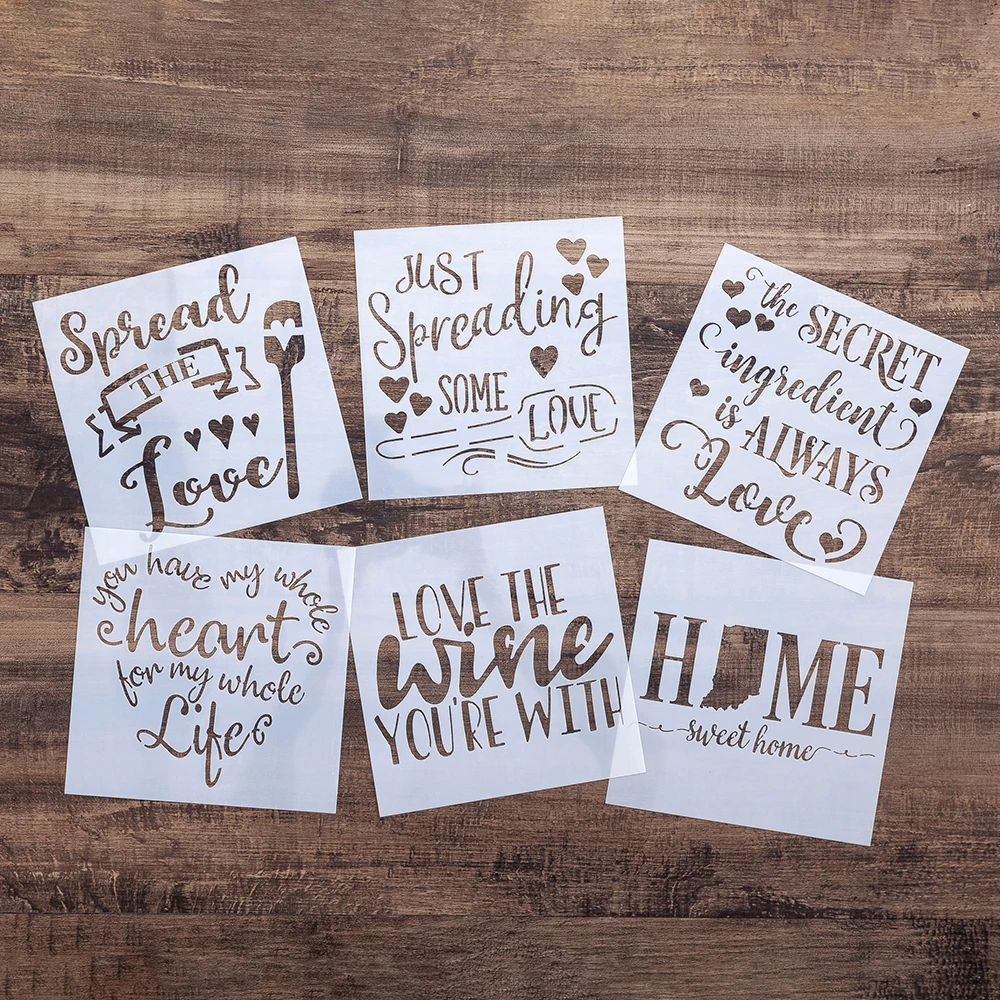 Spread
THE
Love
JUST
Spreading
SOME
LOVE
the SECRET
ingredient
is ALWAYS
Love
you have my whole
heart
for my whole
Life
LOVE THE
wine
YOU'RE WITH
H ME
sweet home